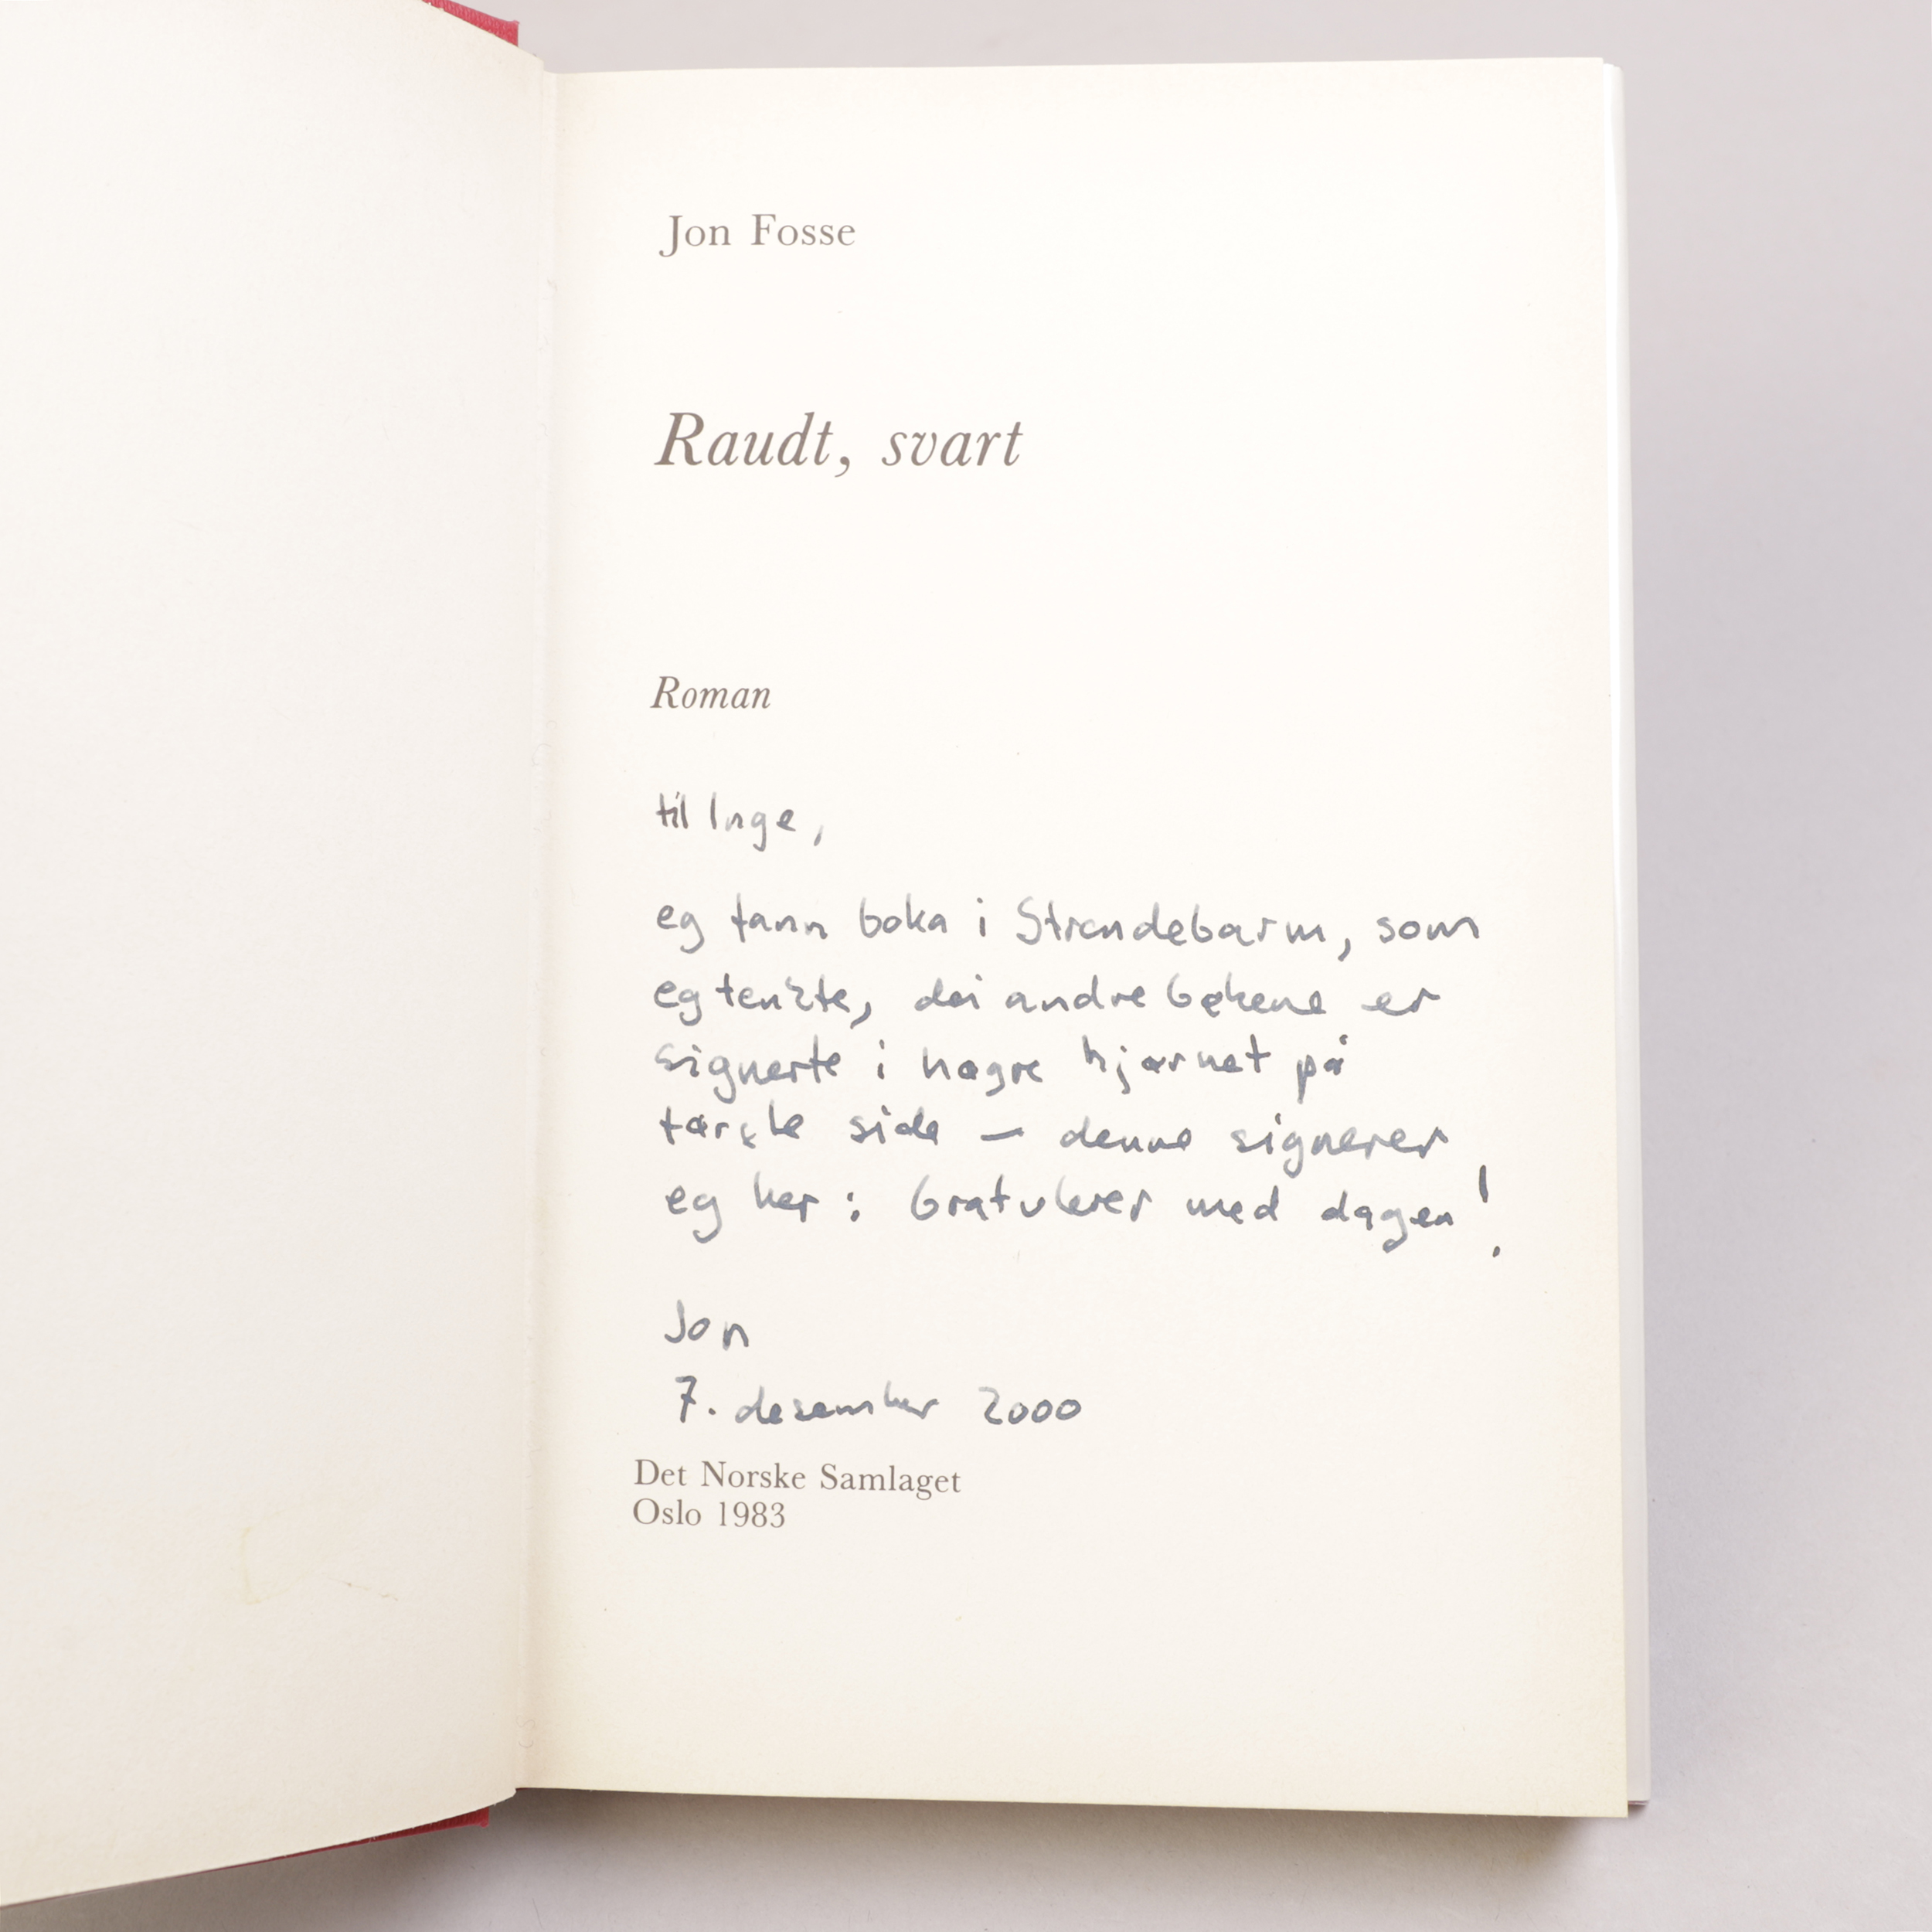 Jon Fosse
Raudt, svart
Roman
til Inge,
eg fann boka i Strandebarm, som
eg tenkte, dei andre bøkene er
signerte i høgre hjørnet på
første side – denne signerer
eg her: Gratulerer med dagen!
Jon
7. desember 2000
Det Norske Samlaget
Oslo 1983